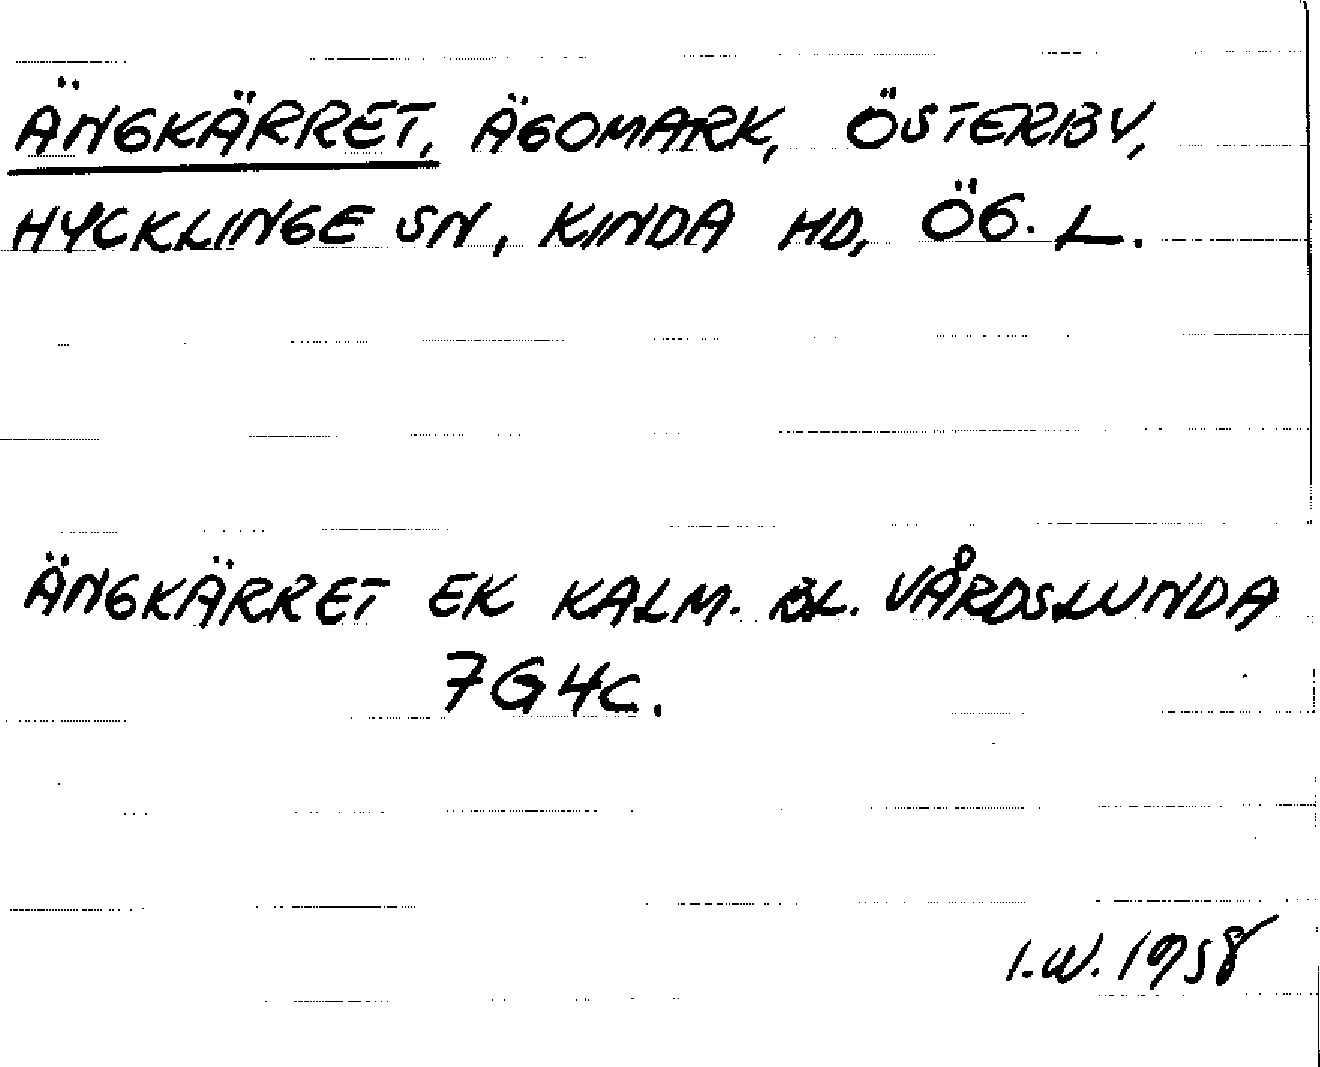 ÄNGKÄRRET, ÄGOMARK, ÖSTERBY,
HYCKLINGE SN, KINDA HD, ÖG. L.
ÄNGKÄRRET EK KALM. BL. VÅRDSLUNDA
7G4C.
I.W. 1958